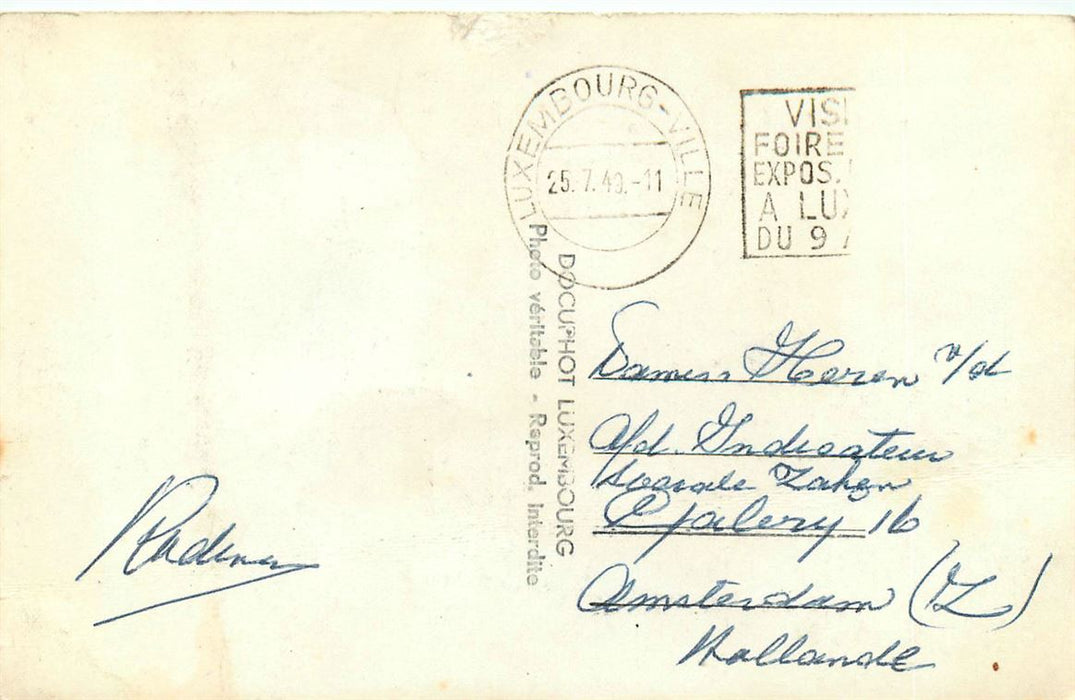 LUXEMBOURG-VILLE
25.7.49.-11
VISI
FOIRE
EXPOS.
A LUX
DU 9 A
DOCUPHOT LUXEMBOURG
Photo véritable - Reprod. Interdite
Heren v/d
Afd. Indicateur
Sociale Zaken
16
Amsterdam (Z)
Hollande